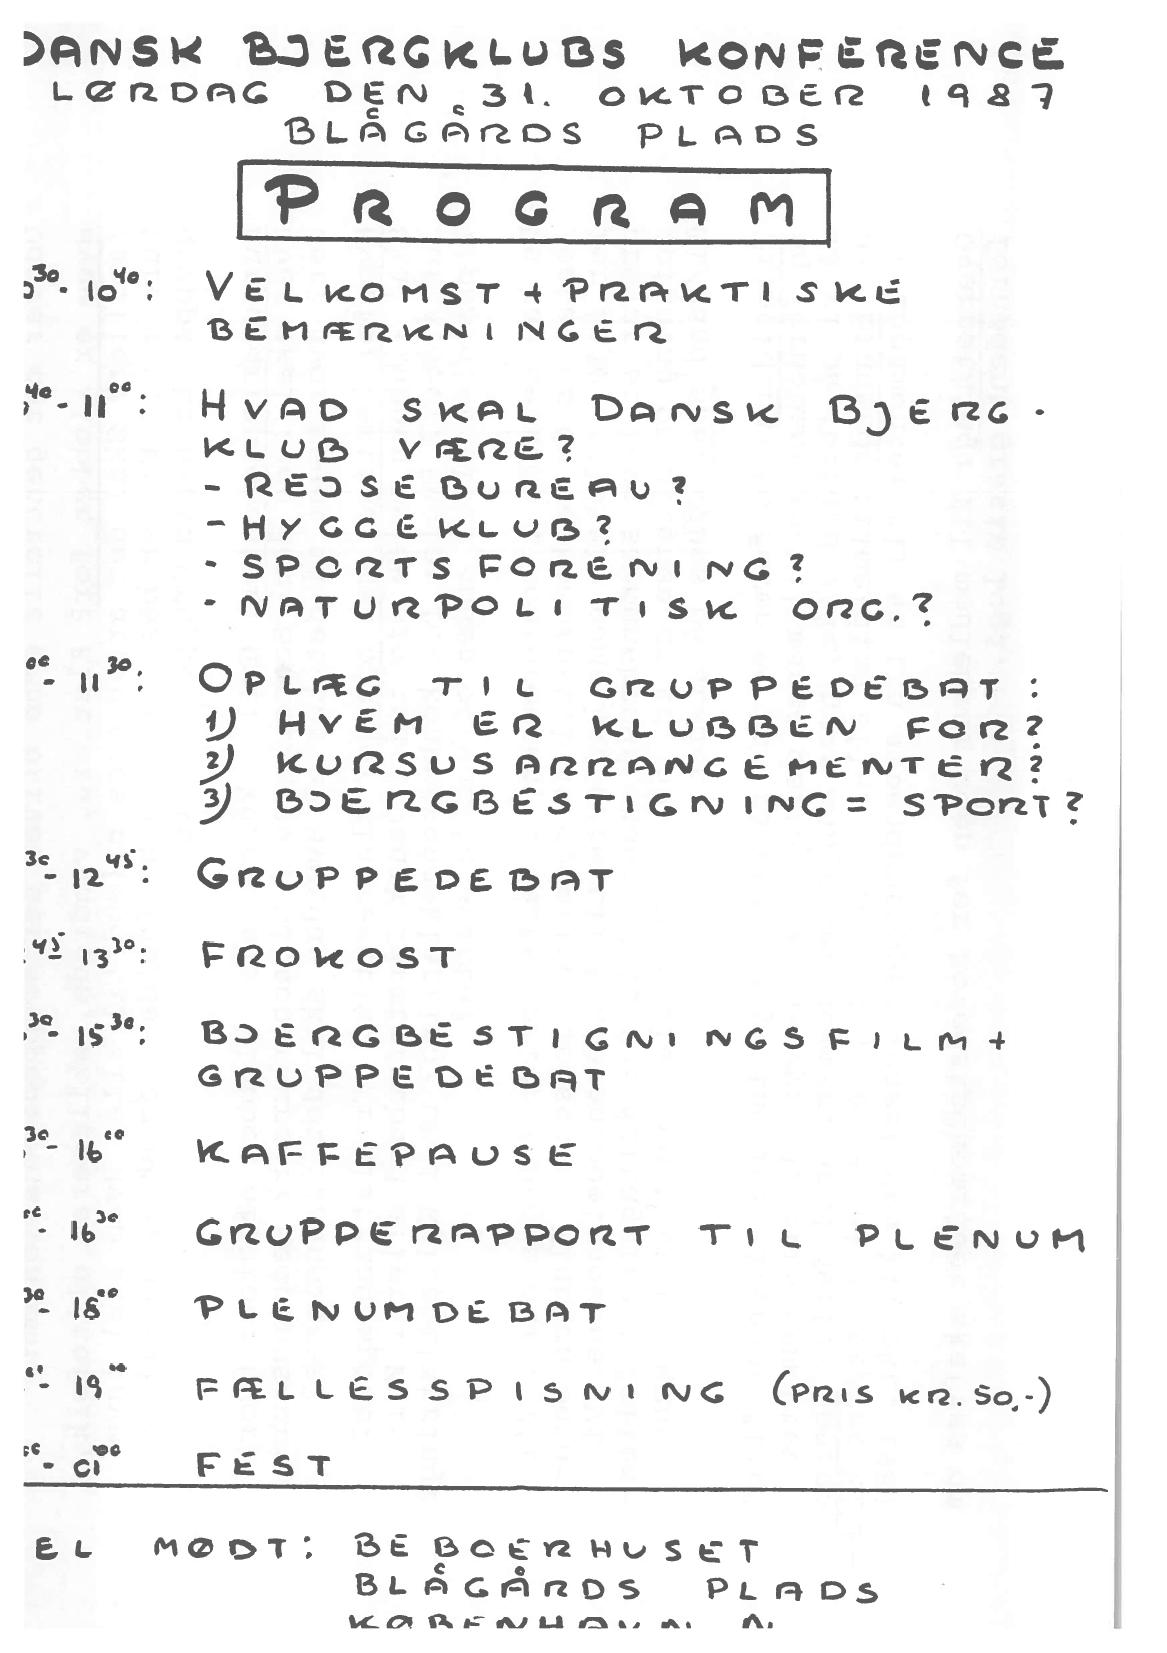 DANSK BJERGKLUBS KONFERENCE
LØRDAG DEN 31. OKTOBER 1987
BLÅGÅRDS PLADS
PROGRAM
30- 10 40: VELKOMST + PRAKTISKE
BEMÆRKNINGER
40- 11 00: HVAD SKAL DANSK BJERG-
KLUB VÆRE?
- REJSEBUREAU?
- HYGGEKLUB?
- SPORTSFORENING?
- NATURPOLITISK ORG.?
00- 11 30: OPLÆG TIL GRUPPEDEBAT:
1) HVEM ER KLUBBEN FOR?
2) KURSUSARRANGEMENTER?
3) BJERGBESTIGNING = SPORT?
30- 12 45: GRUPPEDEBAT
45- 13 30: FROKOST
30- 15 30: BJERGBESTIGNINGSFILM +
GRUPPEDEBAT
30- 16 00 KAFFEPAUSE
00- 16 30 GRUPPERAPPORT TIL PLENUM
30- 18 00 PLENUMDEBAT
00- 19 00 FÆLLESSPISNING (PRIS KR. 50,-)
00- 01 00 FEST
EL MØDT: BEBOERHUSET
BLÅGÅRDS PLADS
KØBENHAVN N